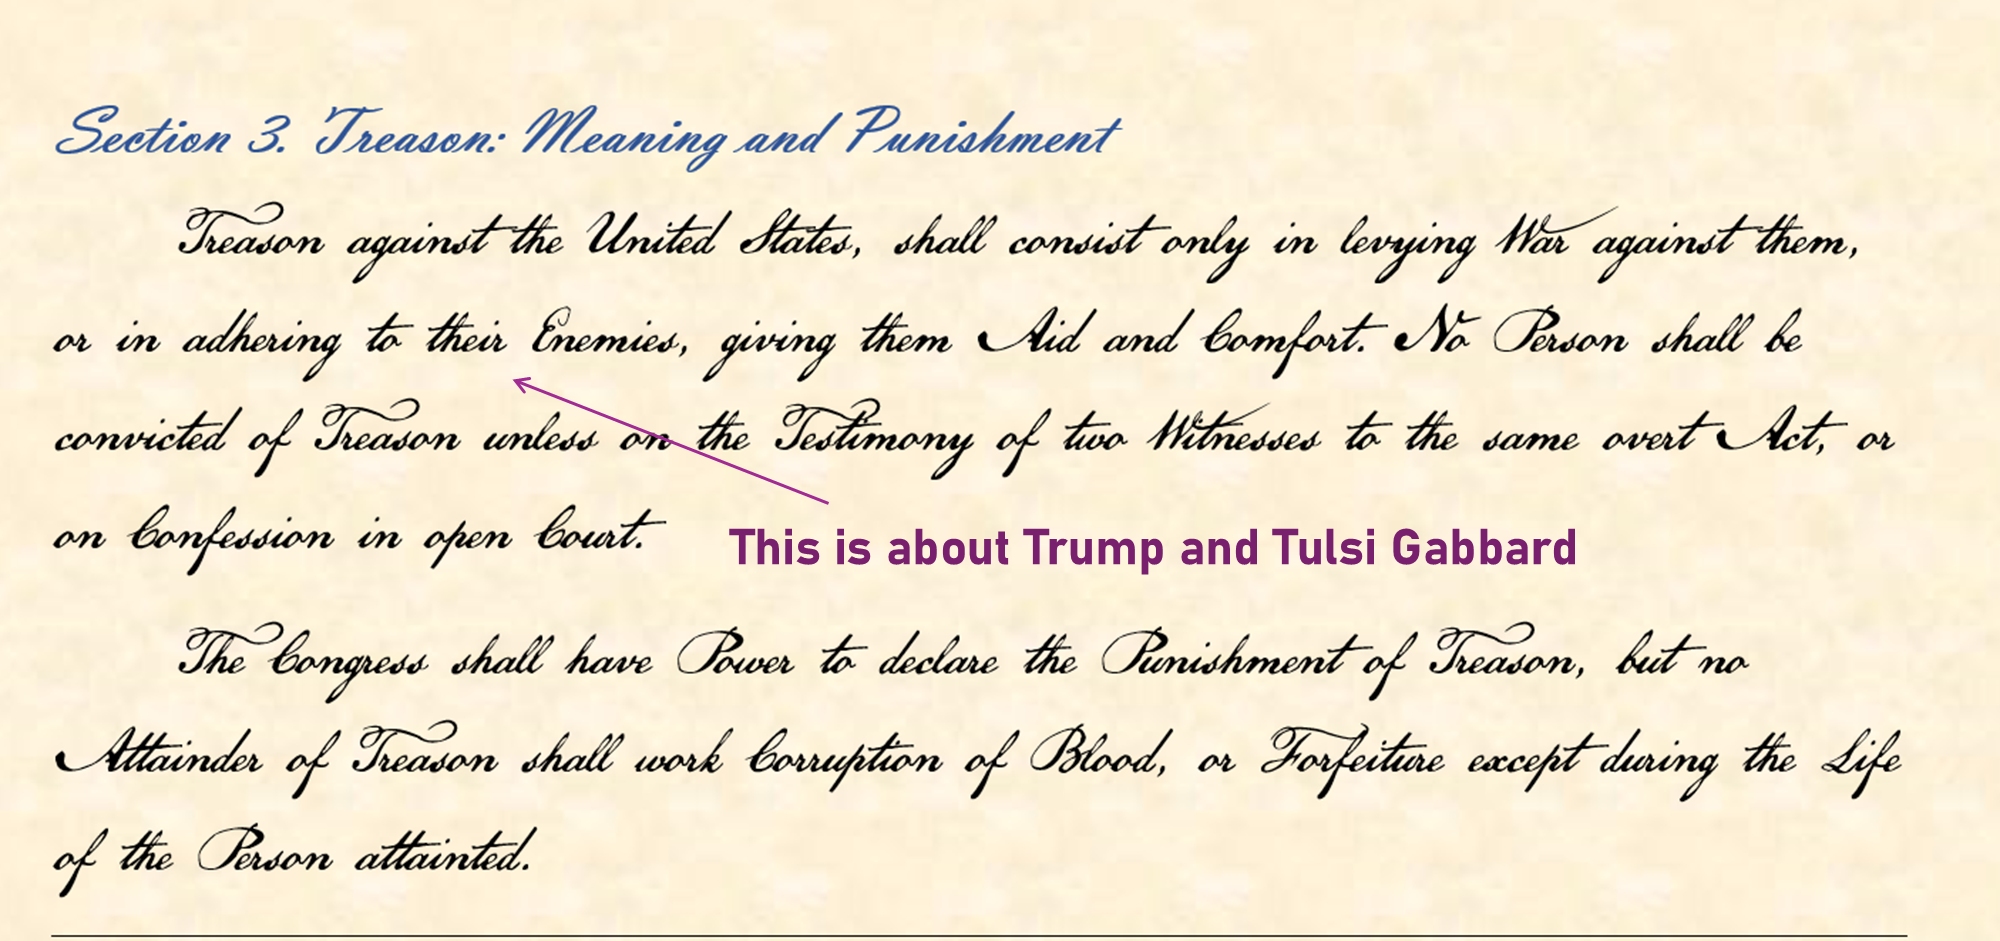 Section 3. Treason: Meaning and Punishment
Treason against the United States, shall consist only in levying War against them,
or in adhering to their Enemies, giving them Aid and Comfort. No Person shall be
convicted of Treason unless on the Testimony of two Witnesses to the same overt Act, or
on Confession in open Court.
This is about Trump and Tulsi Gabbard
The Congress shall have Power to declare the Punishment of Treason, but no
Attainder of Treason shall work Corruption of Blood, or Forfeiture except during the Life
of the Person attainted.